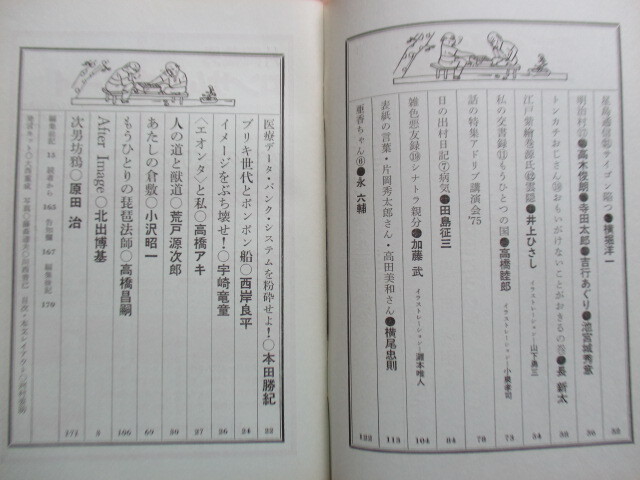 星島通信 サイゴン陥つ●横堀洋一 55
明治村●高木俊朗●寺田太郎●吉行あぐり●池宮城秀意 56
トンカチおじさん おもいがけないことがおきるの巻●長 新太 58
江戸紫絵巻源氏 雲隠●井上ひさし イラストレーション=山下勇三 54
私の交書録⑪もうひとつの国●高橋睦郎 イラストレーション=小薬孝司 73
話の特集アドリブ講演会'75 78
日の出村日記⑦病気●田島征三 84
雑色悪友録⑲シナトラ親分●加藤 武 イラストレーション=灘本唯人 104
表紙の言葉・片岡秀太郎さん・高田美和さん●横尾忠則 113
亜香ちゃん⑧●永 六輔 122
医療データ・バンク・システムを粉砕せよ!○本田勝紀 22
ブリキ世代とポンポン船○西岸良平 24
イメージをぶち壊せ!○宇崎竜童 26
〈エオンタ〉と私○高橋アキ 27
人の道と獣道○荒戸源次郎 50
あたしの倉敷○小沢昭一 69
もうひとりの琵琶法師○高橋昌嗣 166
After Image○北出博基 5
次男坊鴉○原田 治 171
編集前記 15 読者から 165 告知欄 167 編集後記 170